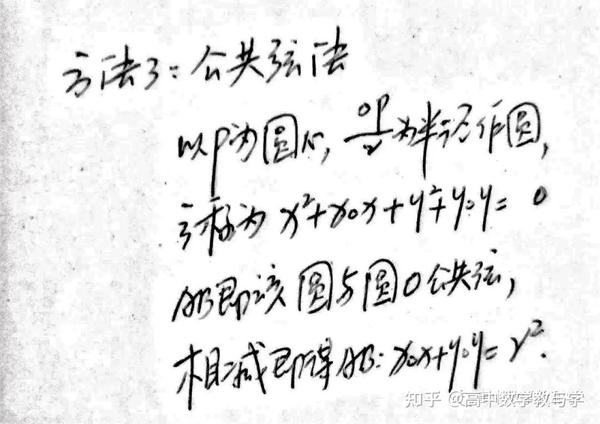 方法3:公共弦法
以P为圆心,OP/2为半径作圆,
方程为 x²+x₀x+y²+y₀y=0
AB即该圆与圆O公共弦,
相减即得AB:x₀x+y₀y=r².
知乎 @高中数学教与学